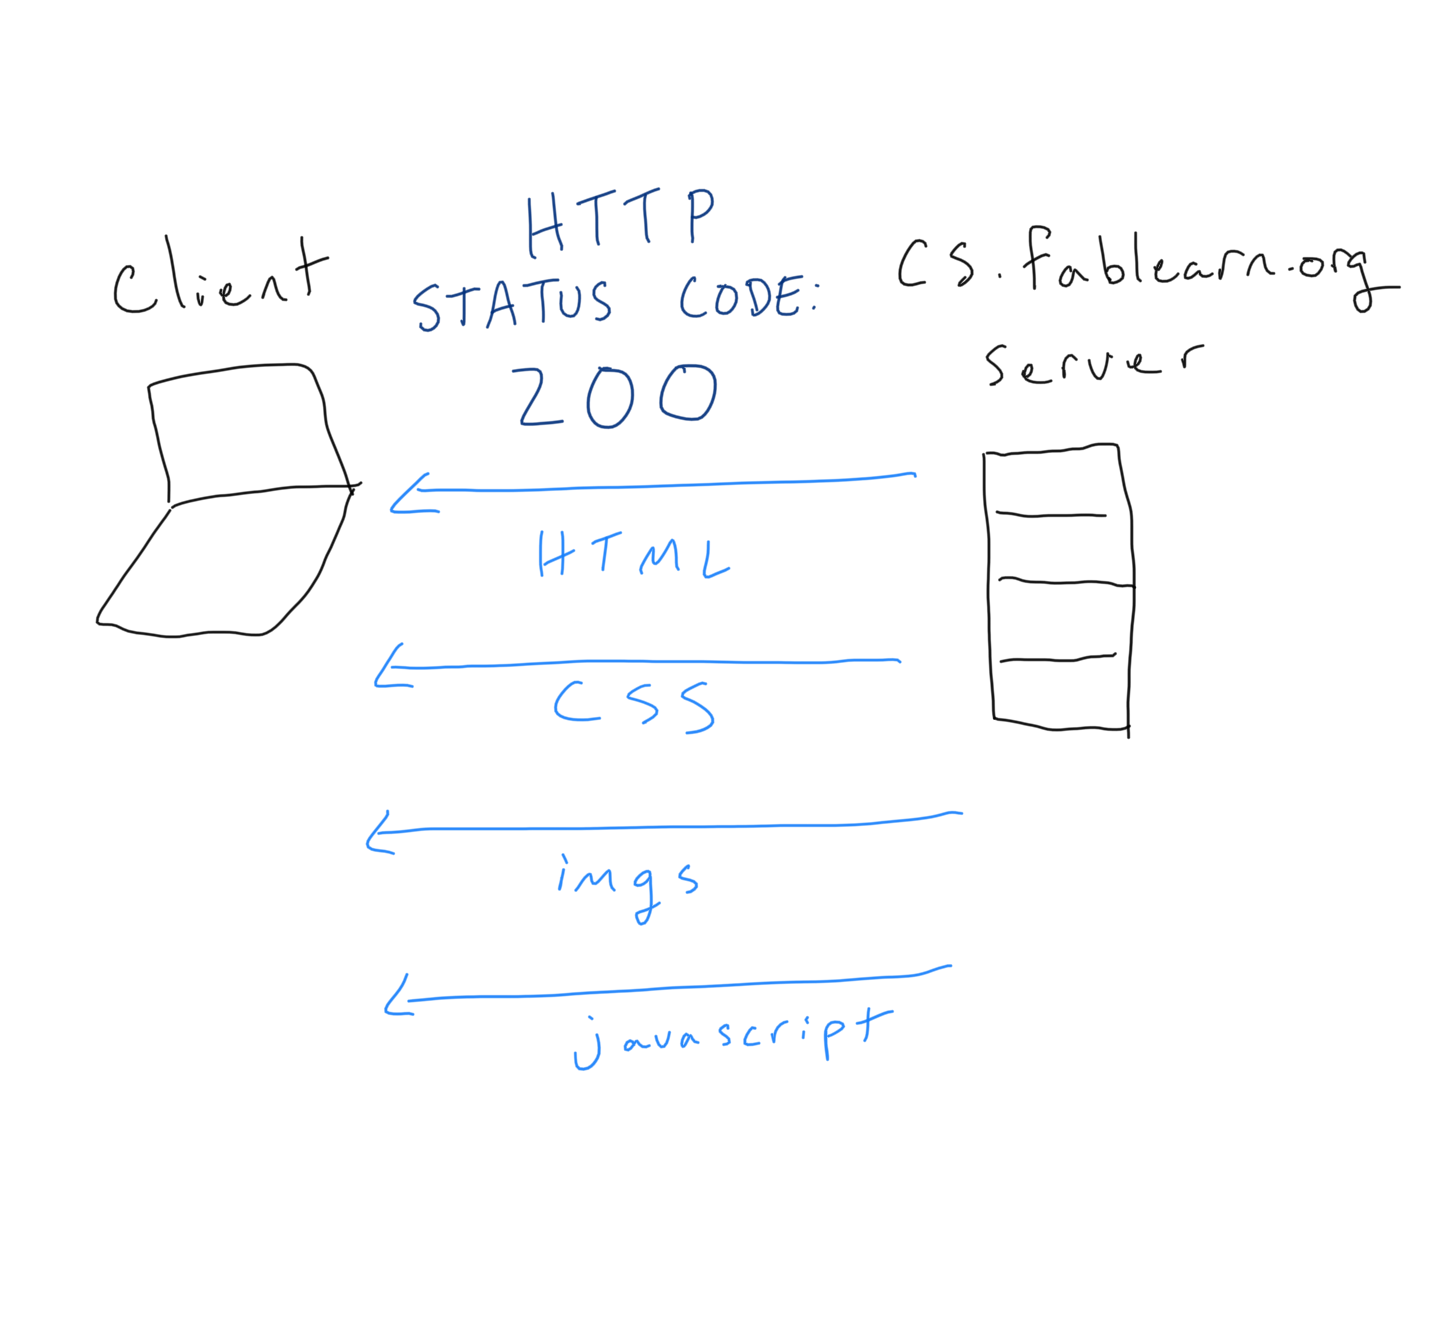 Client
HTTP
STATUS CODE:
200
cs.fablearn.org
server
HTML
CSS
imgs
javascript